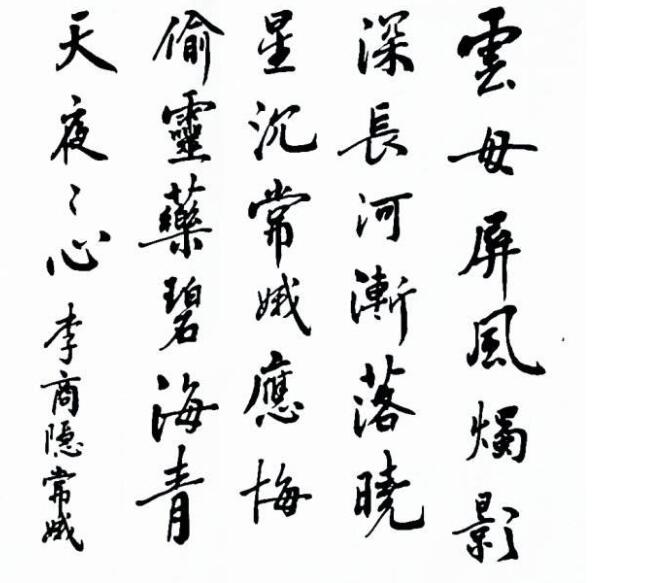 雲母屏風燭影
深長河漸落曉
星沉常娥應悔
偷靈藥碧海青
天夜〻心 李商隱常娥